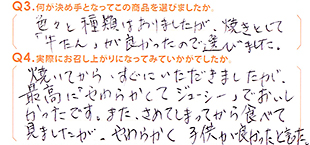 Q3.何が決め手となってこの商品を選びましたか.
色々と種類はありましたが、焼きとして
「牛たん」が良かったので選びました。
Q4.実際にお召し上がりになってみていかがでしたか.
焼いてから、すぐにいただきましたが、
最高に"やわらかくてジューシー"でおいし
かったです。また、さめてしまってから食べて
見ましたが、やわらかく 子供が良かったと言った。